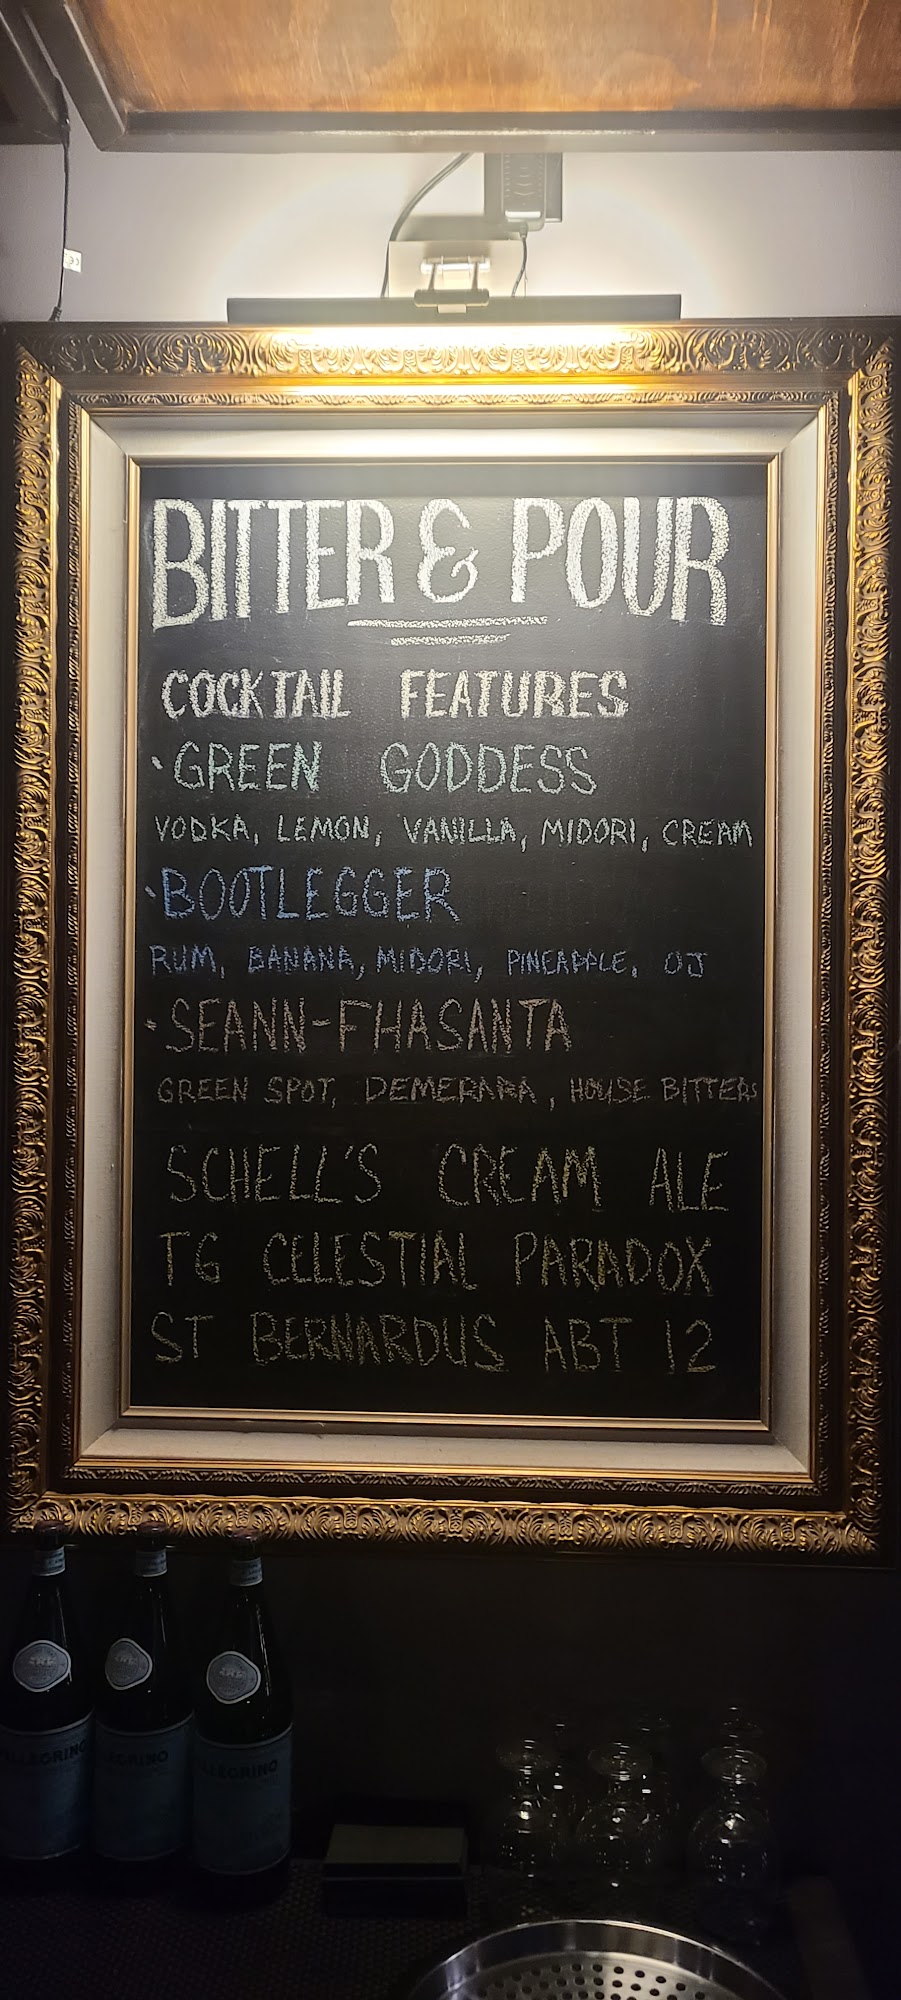 BITTER & POUR
COCKTAIL FEATURES
· GREEN GODDESS
VODKA, LEMON, VANILLA, MIDORI, CREAM
· BOOTLEGGER
RUM, BANANA, MIDORI, PINEAPPLE, OJ
· SEANN-FHASANTA
GREEN SPOT, DEMERARA, HOUSE BITTERS
SCHELL'S CREAM ALE
TG CELESTIAL PARADOX
ST BERNARDUS ABT 12
PELLEGRINO